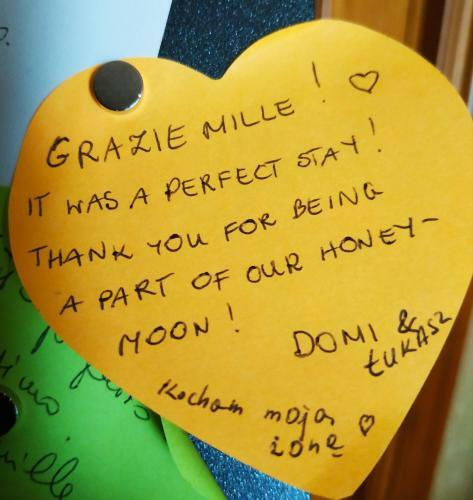 GRAZIE MILLE! ♡
IT WAS A PERFECT STAY!
THANK YOU FOR BEING
A PART OF OUR HONEY-
MOON!
DOMI &
ŁUKASZ
Kocham moja
żonę ♡